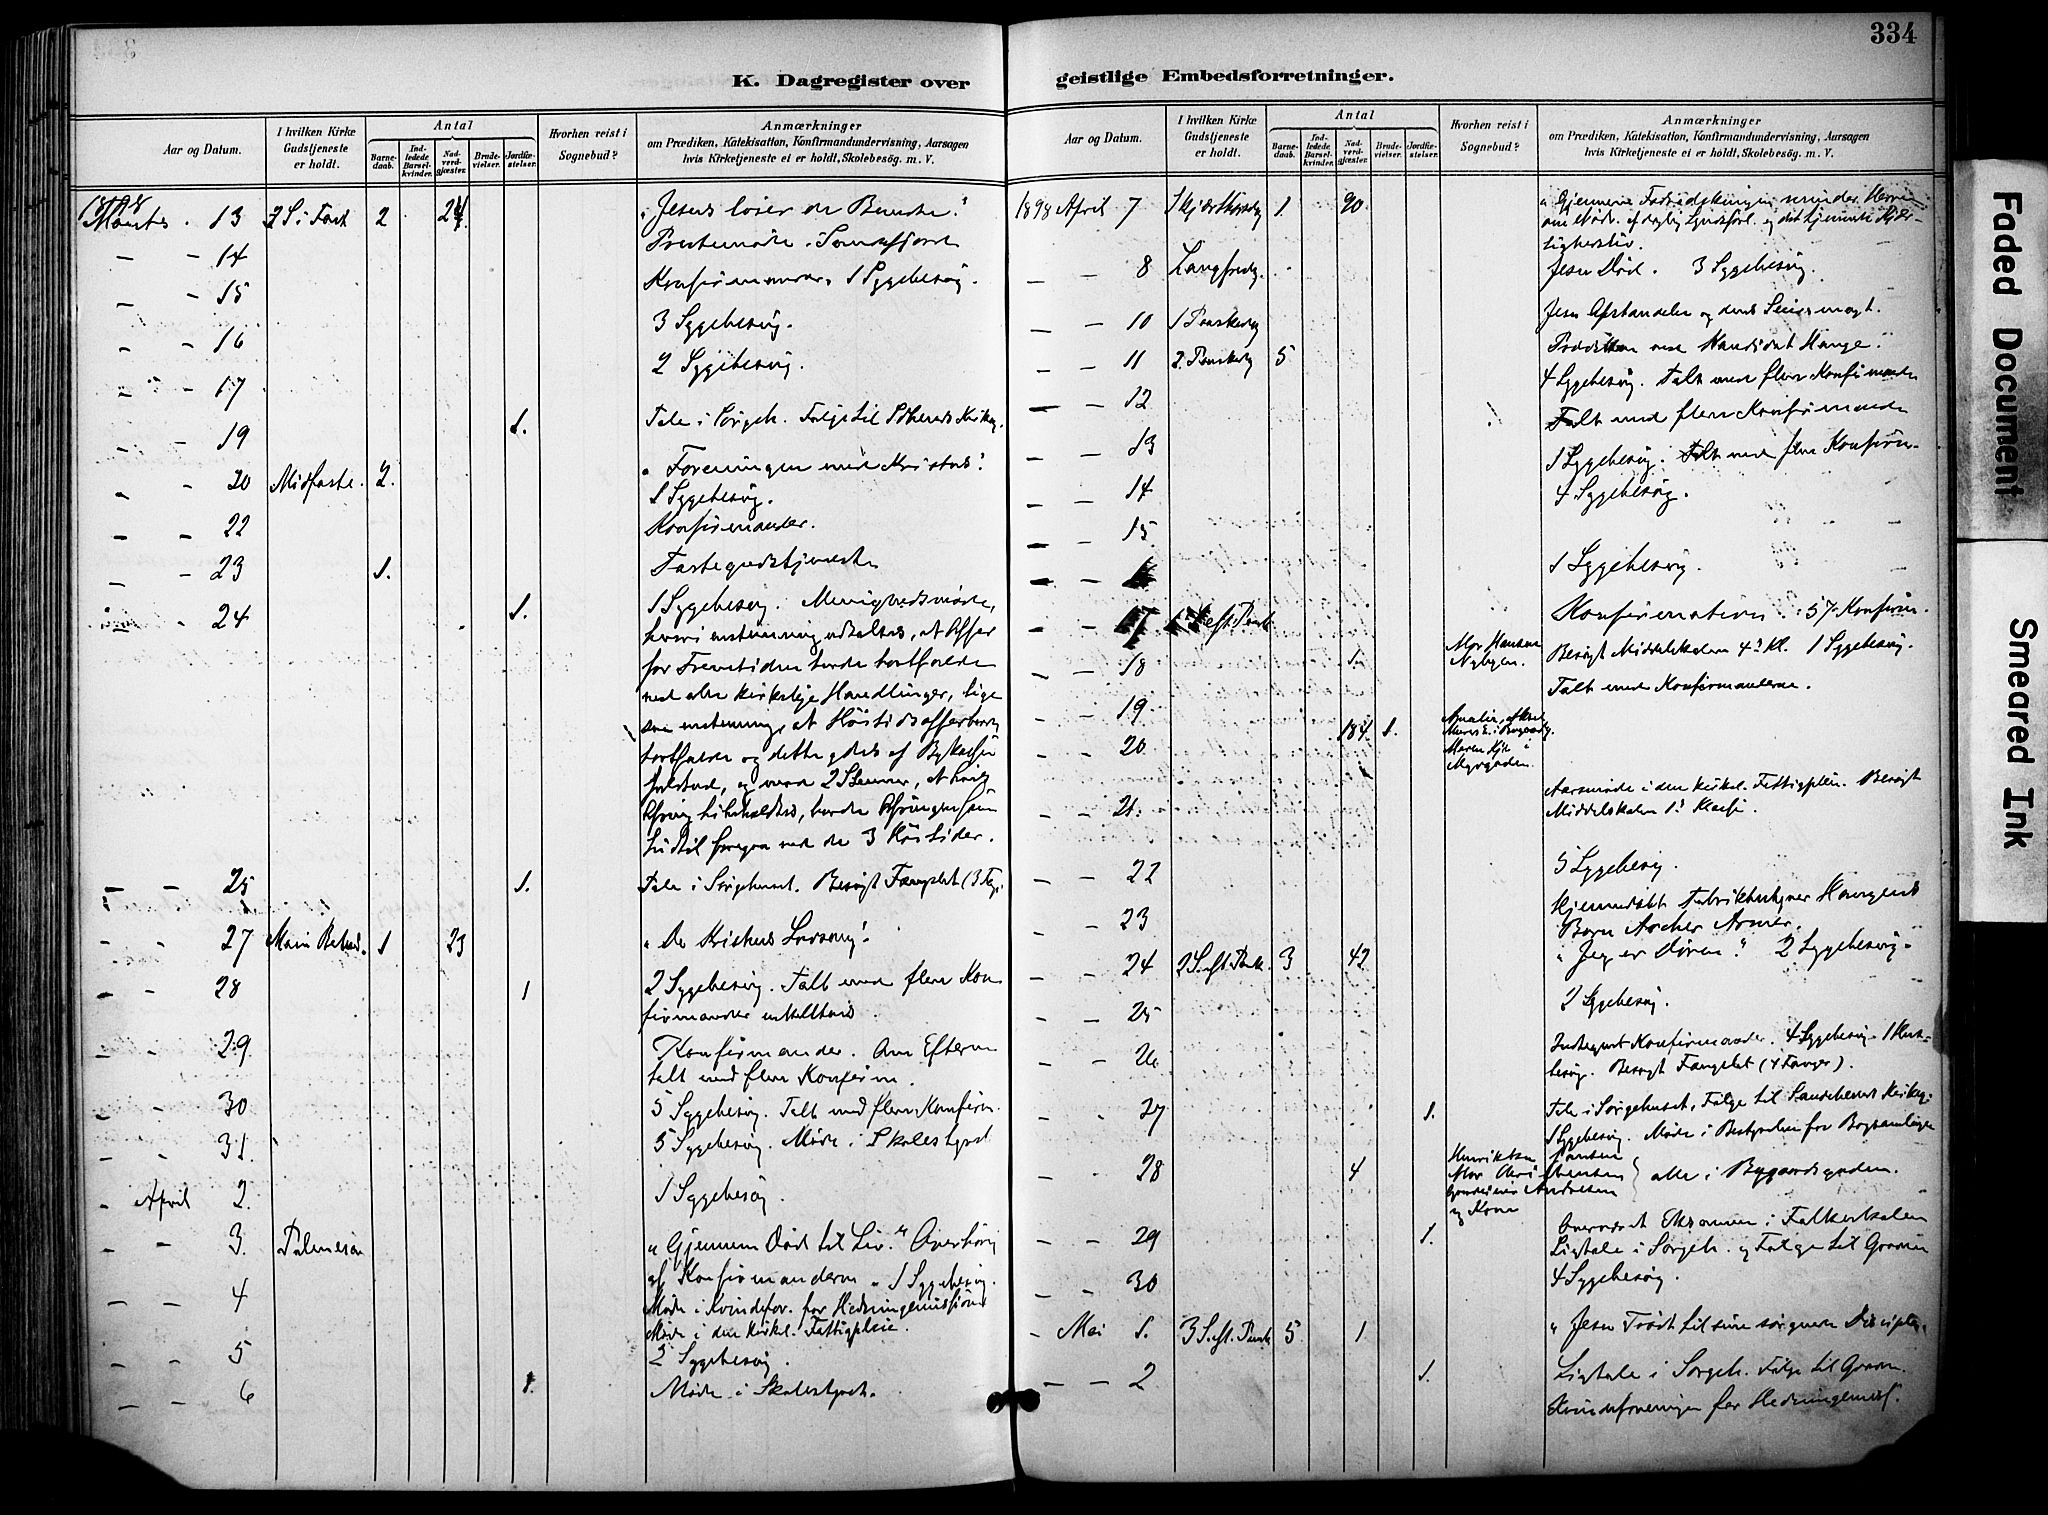 334
K. Dagregister over
geistlige Embedsforretninger.
Aar og Datum.
I hvilken Kirke Gudstjeneste er holdt.
Antal
Barnedaab.
Indledede Barselkvinder.
Nadverdgjæster.
Brudevielser.
Jordfæstelser.
Hvorhen reist i Sognebud?
Anmærkninger
om Prædiken, Katekisation, Konfirmandundervisning, Aarsagen
hvis Kirketjeneste ei er holdt, Skolebesög. m. V.
1898
Marts - 13 3 S. i Fast 2 24 "Jesus løser de Bundne."
- - 14 Prestemøde i Sandefjord
- - 15 Konfirmander, 1 Sygebesøg.
- - 16 3 Sygebesøg.
- - 17 2 Sygebesøg.
- - 19 1. Tale i Sørgeh. Følge til Kirkeg.
- - 20 Midfaste. 2. "Foreningen med Kristus".
1 Sygebesøg.
- - 22 Konfirmander.
- - 23 1. Fastegudstjeneste
- - 24 1. 1 Sygebesøg. Menighedsmøde,
hvori enstemmig udtaltes, at Offer
for Fremtiden burde bortfalde
ved alle kirkelige Handlinger, lige
som enstemmig, at Høitidsofferet burde
bortfalde og dette ydes af Bykassen
og med 2 Stemmer, at hvis
Ofring bibeholdtes, burde Ofringen
foregaa ved de 3 Høitider.
- - 25 1. Tale i Sørgehuset. Besøgt Fængslet (3 Fg.)
- - 27 Mariæ Bebud. 1 23 "De Kristnes Løsning".
- - 28 1 2 Sygebesøg. Talt med flere Kon
firmander enkeltvis.
- - 29 Konfirmander. Om Efterm
talt med flere Konfirm.
- - 30 5 Sygebesøg. Talt med flere Konfirm.
- - 31. 5 Sygebesøg. Møde i Skolestyret
- April 2. 1 Sygebesøg
- - 3. Palmesøn "Gjennem Død til Liv." Overhøring
af Konfirmanderne. 1 Sygebesøg.
- - 4 Møde i Kvindefor. for Hedningemissionen
Møde i den kirkel. Fattigpleie.
- - 5 2 Sygebesøg.
- - 6 1. Møde i Skolestyret.
Aar og Datum.
I hvilken Kirke Gudstjeneste er holdt.
Antal
Barnedaab.
Indledede Barselkvinder.
Nadverdgjæster.
Brudevielser.
Jordfæstelser.
Hvorhen reist i Sognebud?
Anmærkninger
om Prædiken, Katekisation, Konfirmandundervisning, Aarsagen
hvis Kirketjeneste ei er holdt, Skolebesög. m. V.
1898 April 7 Skjærthorsdg 1. 90 "Gjennem Fodtvætningen minder Herren
om Nødv. af daglig Syndsforl. og det tjenende Kjær-
lighedsliv.
- - 8 Langfredg. Jesu Død. 3 Sygebesøg.
- - 10 1 Paaskedg Jesu Opstandelse og dens Seiersmagt.
- - 11 2. Paaskedg 5 Prædiken ved Kandidat Hauge.
- - 12 4 Sygebesøg. Talt med flere Konfirmander
- - 13 Talt med flere Konfirmander
- - 14 1 Sygebesøg. Talt med flere Konfirm.
- - 15 4 Sygebesøg.
1 Sygebesøg.
- - 17 1 S. eft. Paask Konfirmation. 57 Konfirm.
- - 18 1. Mor Hansen Nybyen. Besøgt Middelskolen 4de Kl. 1 Sygebesøg.
- - 19 Talt med Konfirmanterne.
- - 20 184. 1.
- - 21. Aarsmøde i den kirkel. Fattigpleie. Besøgt
Middelskolen 1ste Klasse.
- - 22 5 Sygebesøg.
- - 23 Hjemmedøbt Haugens
Barn Archer Arner.
- - 24 2 S. eft. Paask. 3 42 "Jeg er Døren". 2 Sygebesøg.
- - 25 2 Sygebesøg.
- - 26 Indtegnet Konfirmander. 4 Sygebesøg. 1 Hus-
besøg. Besøgt Fængslet (4 Fanger).
- - 27 1. Tale i Sørgehuset, Følge til Sandeherred Kirkeg.
1 Sygebesøg. Møde i Bestyrelsen for Bogsamlingen
- - 28 4 Henriksen Hansen
Mor Christensen
Andresen
og Kone
alle i Bygaardsgaden.
- - 29 1. Overværet Eksamen i Folkeskolen
Ligtale i Sørgeh. og Følge til Graven
- - 30 4 Sygebesøg.
- Mai 1. 3 S. eft. Paask 5 1 "Jesu Trøst til sine sørgende Disciple.
- - 2 1. Ligtale i Sørgeh. Følge til Graven.
Kvindeforeningen for Hedningemiss.
Faded Document
Smeared Ink